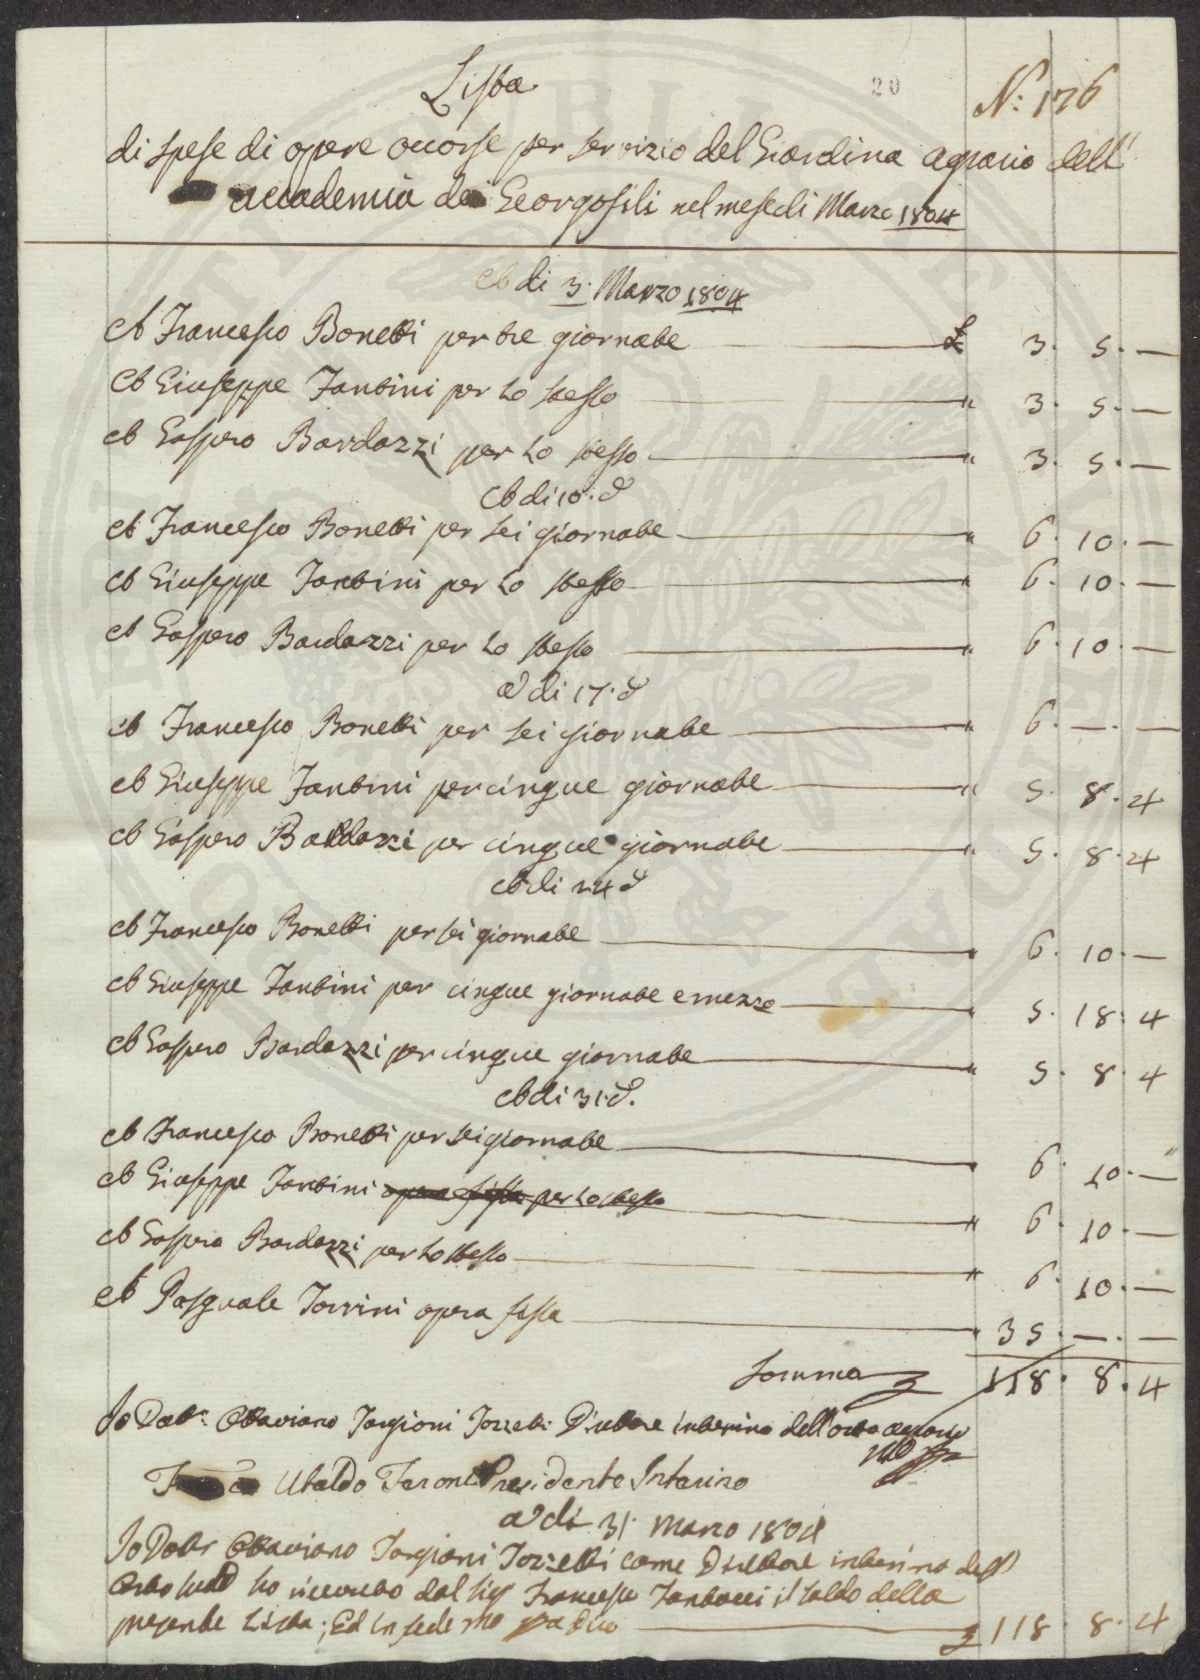 20
N.º 176
Lista
di spese di opere occorse per servizio del Giardino agrario dell'
accademia dei Georgofili nel mese di Marzo 1804
A di 3. Marzo 1804
A Francesco Bonetti per tre giornate £ 3. 5. —
A Giuseppe Tantini per lo stesso " 3. 5. —
A Gaspero Bardazzi per lo stesso " 3. 5. —
A di 10. d.º
A Francesco Bonetti per sei giornate " 6. 10. —
A Giuseppe Tantini per lo stesso " 6. 10. —
A Gaspero Bardazzi per lo stesso " 6. 10. —
a di 17. d.º
A Francesco Bonetti per sei giornate " 6. — . —
A Giuseppe Tantini per cinque giornate " 5. 8. 4
A Gaspero Bardazzi per cinque giornate " 5. 8. 4
A di 24 d.º
A Francesco Bonetti per sei giornate " 6. 10. —
A Giuseppe Tantini per cinque giornate e mezzo " 5. 18. 4
A Gaspero Bardazzi per cinque giornate " 5. 8. 4
A di 31. d.º
A Francesco Bonetti per sei giornate " 6. 10. —
A Giuseppe Tantini opera fissa per lo stesso " 6. 10. —
A Gaspero Bardazzi per lo stesso " 6. 10. —
A Pasquale Torrini opera fissa " 35. — . —
Somma £ 118. 8. 4
Io Dott.r Ottaviano Targioni Tozzetti Direttore interino dell'orto agrario
Ubaldo Feroni Presidente Interino
a di 31. Marzo 1804
Io Dottr Ottaviano Targioni Tozzetti come Direttore interino dell'
Orto sud.º ho ricevuto dal Sig.r Francesco Tantucci il saldo della
presente Lista; Ed in fede mo pa dico £ 118. 8. 4